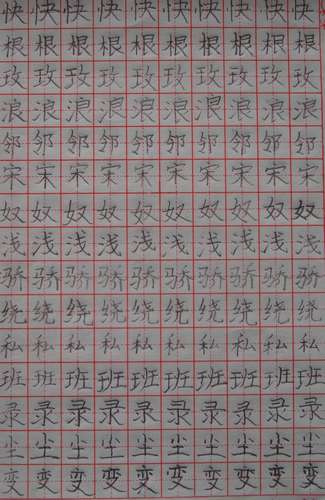 快快快快快快快快快快
根根根根根根根根根根
玫玫玫玫玫玫玫玫玫玫
浪浪浪浪浪浪浪浪浪浪
邻邻邻邻邻邻邻邻邻邻
宋宋宋宋宋宋宋宋宋宋
奴奴奴奴奴奴奴奴奴奴
浅浅浅浅浅浅浅浅浅浅
骄骄骄骄骄骄骄骄骄骄
绕绕绕绕绕绕绕绕绕绕
私私私私私私私私私私
班班班班班班班班班班
录录录录录录录录录录
尘尘尘尘尘尘尘尘尘尘
变变变变变变变变变变